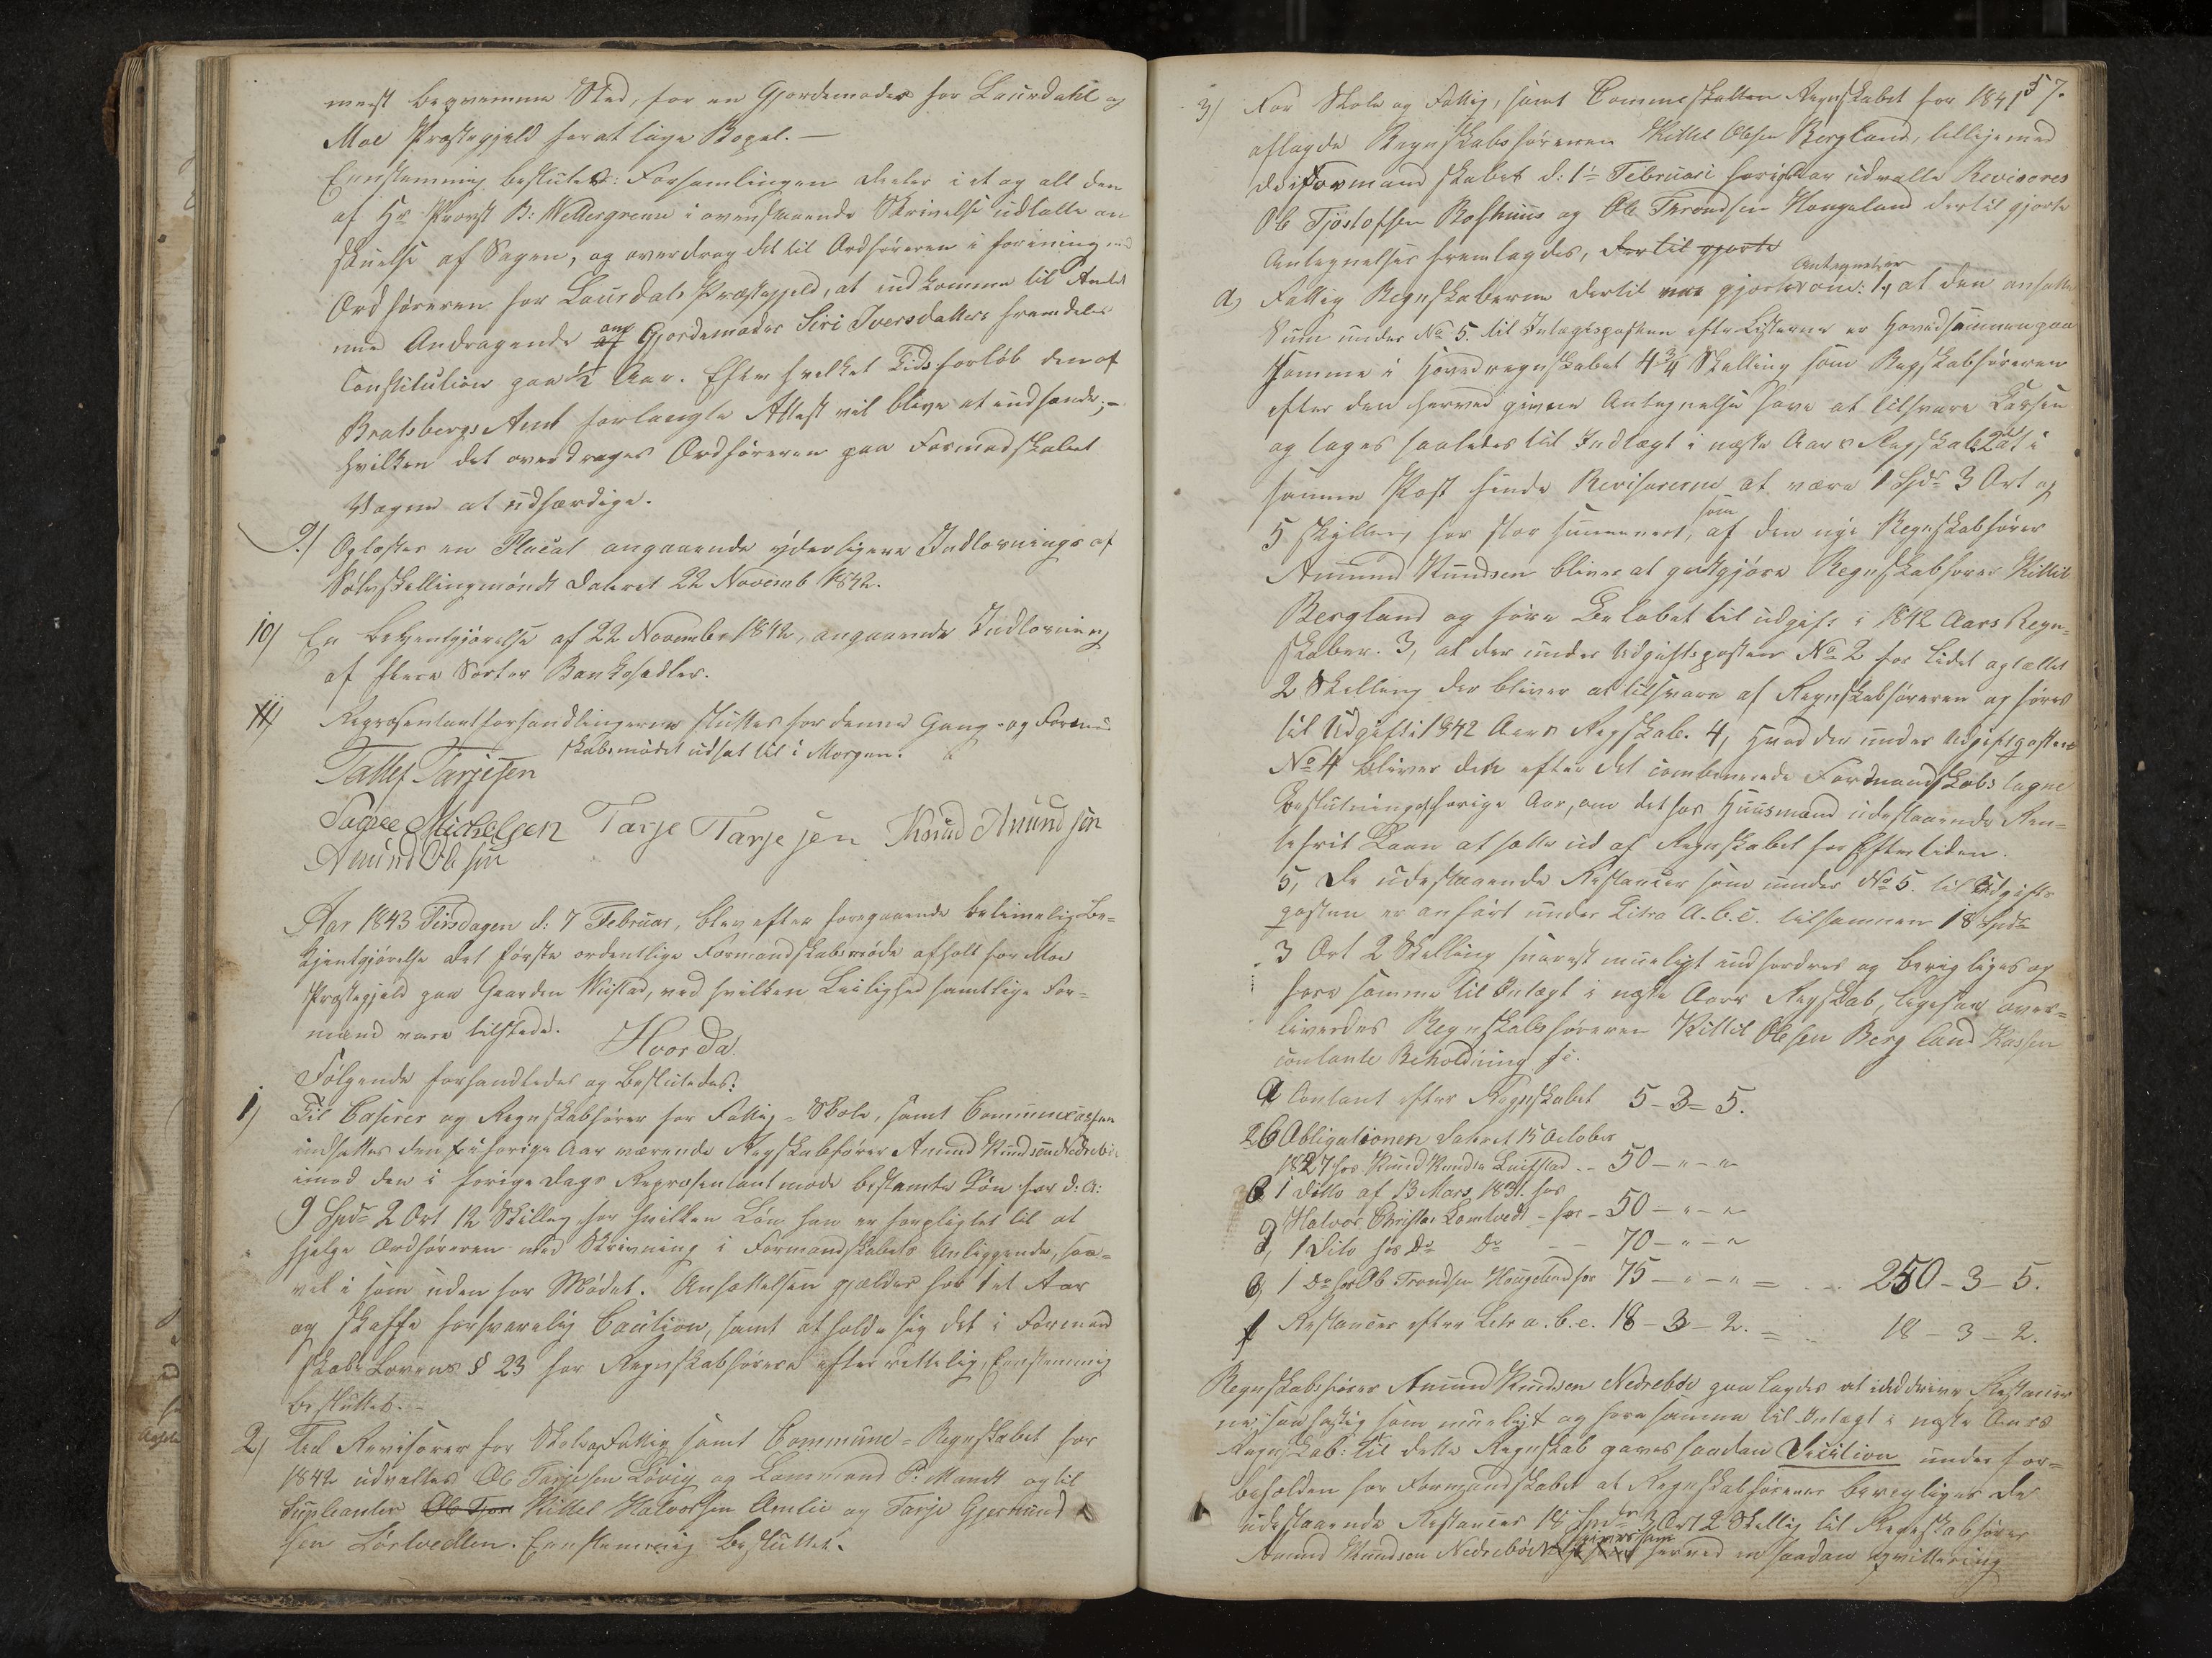 meest beqvemme Sted, for en Gjordemoder for Laurdahl og
Moe Præstegjeld for at tage Bopel. —
Eenstemmig besluttet: Forsamlingen deeler i et og alt den
af Hr Provst B: Wettergreen i ovenstaaende Skrivelse udtalte an
skuelse af Sagen, og overdrog det til Ordføreren i forening med
Ordføreren for Laurdals Præstegjeld, at indkomme til Amtet
med Andragende om Gjordemoder Siri Iversdatters fremdeles
Constitution paa ½ Aar. Efter hvilket Tidsforløb den af
Bratsbergs Amt forlangte Attest vil blive at indsende; —
hvilken det overdrages Ordføreren paa Formandskabet
Vegne at udfærdige.
9) Oplæstes en Placat angaaende yderligere Indløsnings af
Sølvskillingmøndt dateret 22 Novemb 1842.
10) En bekjentgjørelse af 22 November 1842, angaaende Indløsning
af flere Sorter Bankosedler.
11) Repræsentantforhandlingerne sluttes for denne Gang - og Formand
skabsmødet udsat til i Morgen.
Tallef Tarjesen
Michelsen Tarje Tarjesen Knud Amundsen
Amund Olsen
Aar 1843 Tirsdagen d: 7 Februar, blev efter foregaaende betimelig Be=
kjentgjørelse det første ordentlige Formandskabsmøde afholt for Moe
Præstegjeld paa Gaarden, ved hvilken Leilighed samtlige For=
mænd vare tilstede.
Hvorda
Følgende forhandledes og besluttedes:
1) Til Caserer og Regnskabfører for Fattig= Skole, samt Communecassen
indsættes den i forrige Aar værende Regskabfører Amund Knudsen Nedrebøe
imod den i forrige dags Repræsentantmøde bestemte Løn for d: A:
9 Spd 2 Ort 12 Skilling for hvilken Løn han er forpligtet til at
hjelpe Ordføreren med Skrivning i Formandskabets Anliggende, saa=
vel i som uden for Mødet. Ansættelsen gjælder for 1 et Aar
og skaffe forsvarelig Caution, samt at holde sig det i Formand
skabs Lovens § 23 for Regnskabsførere efterrettelig, Eenstemmig
besluttet. —
2) Til Revisorer for Skole og Fattig samt Commune= Regnskabet for
1842 udvaltes Ole Tarjesen Løvig og Lammand P: Mandt og til
Supleanter Ole Kittel Halvorsen Amlie og Tarje Gjermund
sen Lørtvedten. Eenstemmig besluttet.
57.
3) For Skole og Fattig, samt Commeskatten Regnskabet for 1841
aflagde Regnskabsføreren Kittil Olsen Bergland, tilligemed
de i Formandskabet d: 1 Februari forige Aar udvalte Revisores
Ole Tjøstolfsen Roshuus og Ole Throndsen Haugeland dertil gjorte
Antegnelser fremlagdes, dertil gjorte
Antegnelser
a) Fattig Regnskaberne dertil var gjortes om: 1, at den ansatte
Sum under No 5. til Intægtsposten efter Listerne er Hovedsummen paa
samme i Hovedregnskabet 4¾ Skelling som Regskabsføreren
efter den herved givne Antegnelse have at tilsvare Cassen
og tages saaledes til Indtægt i næste Aars Regskab. 2, at i
samme Post finde Revisorerne at være 1 Spd 3 Ort og
som
5 skilling for stor summeret, af den nye Regnskabfører
Amund Knudsen bliver at godtgjøre Regnskabfører Kittil
Bergland og føre Beløbet til udgift i 1842 Aars Regn=
skaber. 3, at der under Udgiftsposten No 2 for lidet optællet
2 Skelling der bliver at tilsvare af Regnskabføreren og føres
til Udgift i 1842 Aars Regskab. 4, Hvad der under Udgiftsposten
No 4 bliver den efter det combinerede Formandskabs tagne
Beslutning forrige Aar, om det hos Huusmænd udestaaende Ren=
tefrit Laan at sætte ud af Regnskabet for Eftertiden.
5, De udestaaende Restancer som under No 5. til Udgifts
posten er anført under Litra A. b. c. tilsammen 18 Spd
3 Ort 2 Skelling snarest mueligt indfordres og berigtiges og
føre samme til Intægt i næste Aars Regskab, ligesom over=
leverdes Regnskabsføreren Kittil Olsen Bergland Kassen
contante Beholdning s:
a Contant efter Regnskabet 5 – 3 – 5.
2 b Obligationen dateret 15 October
1827 hos Knud Knudsen 50 – " – "
c 1 ditto af 13 Mars 1831. hos
Halvor Christia Lomtvedt – for – 50 – " – "
d, 1 dito hos do do – – 70 – " – "
e, 1 do hos Ole Trondsen Haugeland for 75 – " – " = 250 – 3 – 5.
f Restancer efter Litr a. b. c. 18 – 3 – 2. = 18 – 3 – 2.
Regnskabsfører Amund Knudsen Nedrebøe paalagdes at inddrive Restancer
ne, saa hastig som mueligt og føre samme til Intægt i næste Aars
Regnskab: til dette Regnskab gaves saadan Decition under for=
beholden for Formandskabet at Regnskabføreren berigtiger de
udestaaende Restancer 18 Spdr 3 Ort 2 Skellig til Regnskabfører
Amund Knudsen Nedrebøe herved en saadan qvittering